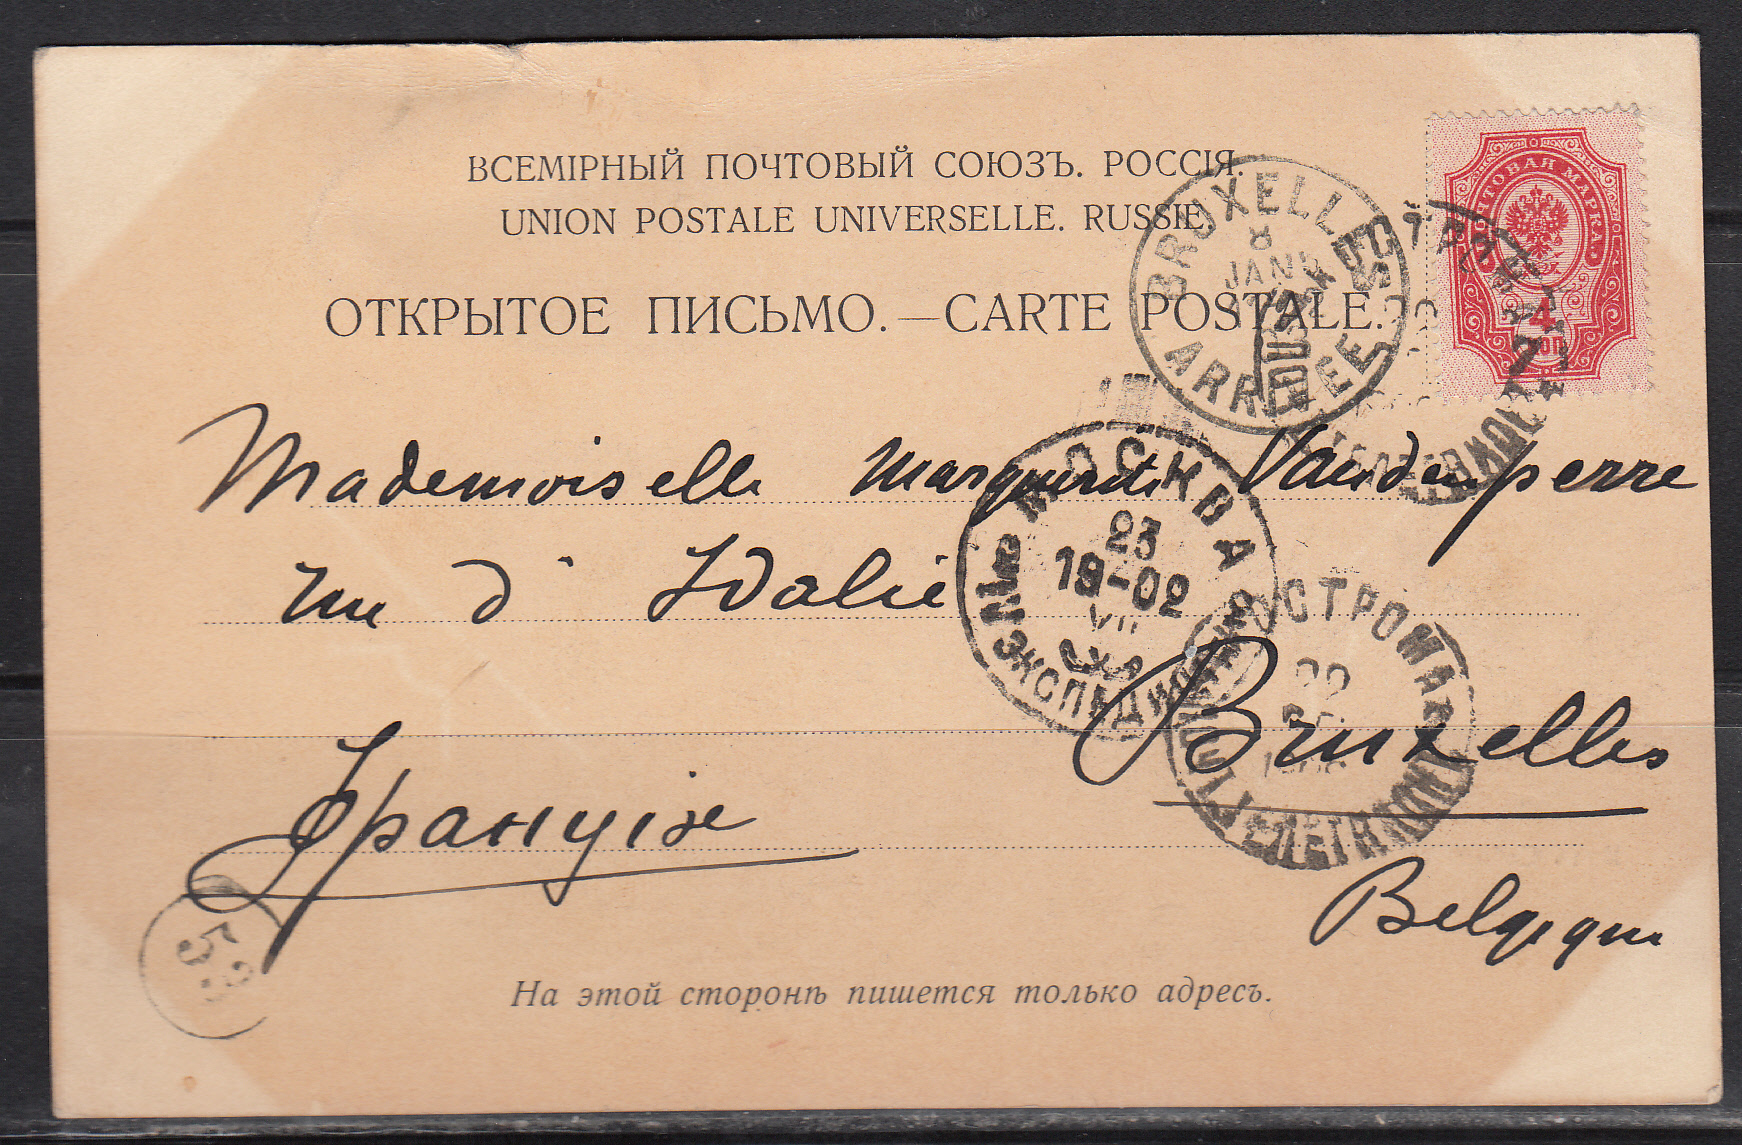 ВСЕМІРНЫЙ ПОЧТОВЫЙ СОЮЗЪ. РОССІЯ.
UNION POSTALE UNIVERSELLE. RUSSIE.
ОТКРЫТОЕ ПИСЬМО. — CARTE POSTALE.
ПОЧТОВАЯ МАРКА
4
КОП
BRUXELLES
8
JANV
ARRIVEE
Mademoiselle Marguerite Vandenperre
МОСКВА
23
19-02
VII
ЭКСПЕДИЦІЯ
rue d' Idalie
КОСТРОМА
22
ПОЧТ. ТЕЛ. КОНТ.
Bruxelles
Франція
Belgique
53
На этой сторонѣ пишется только адресъ.